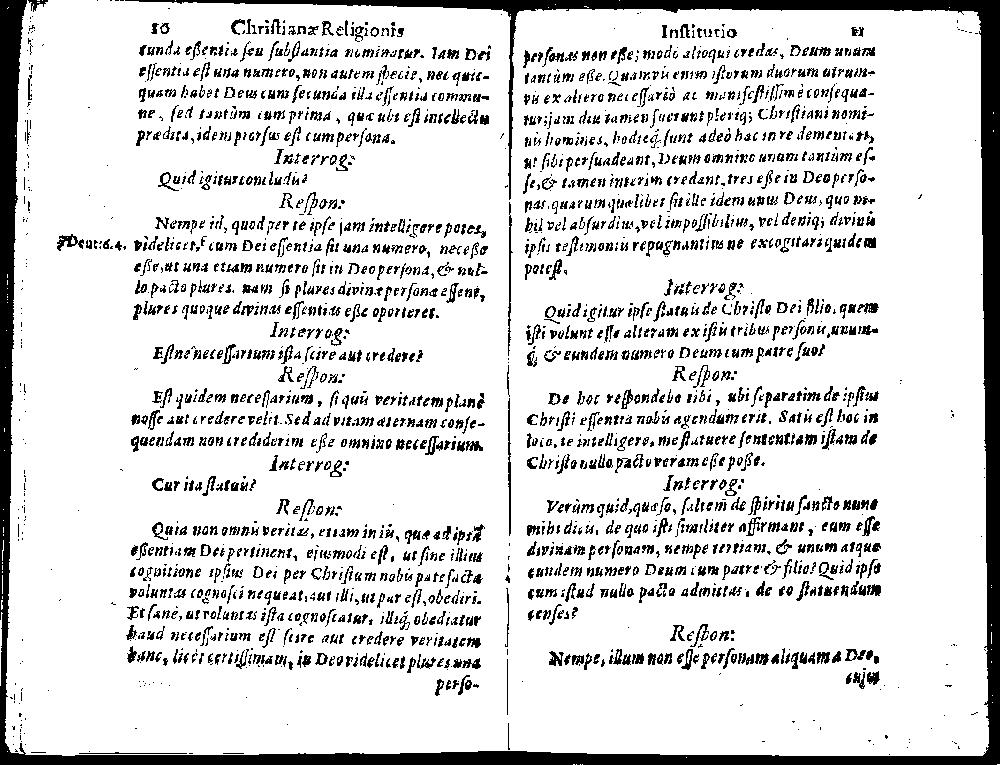 10 Christianæ Religionis
cunda eßentia seu substantia nominatur. Iam Dei
essentia est una numero, non autem specie, nec quic-
quam habet Deus cum secunda illa essentia commu-
ne, sed tantùm cum prima, quæ ubi est intellectu
prædita, idem prorsus est cum persona.
Interrog:
Quid igitur concludis?
Respon:
Nempe id, quod per te ipse jam intelligere potes,
Deut: 6. 4. videlicet, cum Dei essentia sit una numero, neceße
eße, ut una etiam numero sit in Deo persona, & nul-
lo pacto plures. nam si plures divinæ personæ essent,
plures quoque divinas essentias eße oporteret.
Interrog:
Estne necessarium ista scire aut credere?
Respon:
Est quidem necessarium, si quis veritatem planè
nosse aut credere velit. Sed ad vitam æternam conse-
quendam non crediderim eße omnino necessarium.
Interrog:
Cur ita statuis?
Respon:
Quia non omnis veritas, etiam in iis, quæ ad ipsã
eßentiam Dei pertinent, ejusmodi est, ut sine illius
cognitione ipsius Dei per Christum nobis patefacta
voluntas cognosci nequeat, aut illi, ut par est, obediri.
Et sanè, ut voluntas ista cognoscatur, illiq; obediatur
haud necessarium est scire aut credere veritatem
hanc, licet certissimam, in Deo videlicet plures una
perso-
Institutio 11
personas non eße; modò alioqui credas, Deum unum
tantùm eße. Quamvis enim istorum duorum utrum-
vis ex altero necessariò ac manifestissimè consequa-
tur; jam diu tamen fuerunt pleriq; Christiani nomi-
nis homines, hodieq; sunt adeò hac in re dementati,
ut sibi persuadeant, Deum omnino unum tantùm es-
se, & tamen interim credant, tres eße in Deo perso-
nas, quarum quælibet sit ille idem unus Deus, quo ni-
hil vel absurdius, vel impossibilius, vel deniq; divinis
ipsis testimoniis repugnantius ne excogitari quidem
potest.
Interrog:
Quid igitur ipse statuis de Christo Dei filio, quem
isti volunt esse alteram ex istis tribus personis, unum-
q; & eundem numero Deum cum patre suo?
Respon:
De hoc respondebo tibi, ubi separatim de ipsius
Christi essentia nobis agendum erit. Satis est hoc in
loco, te intelligere, me statuere sententiam istam de
Christo nullo pacto veram eße poße.
Interrog:
Verùm quid, quæso, saltem de spiritu sancto nunc
mihi dicis, de quo isti similiter affirmant, eum esse
divinam personam, nempe tertiam, & unum atque
eundem numero Deum cum patre & filio? Quid ipse
cum istud nullo pacto admittas, de eo statuendum
censes?
Respon:
Nempe, illum non esse personam aliquam a Deo,
cujus